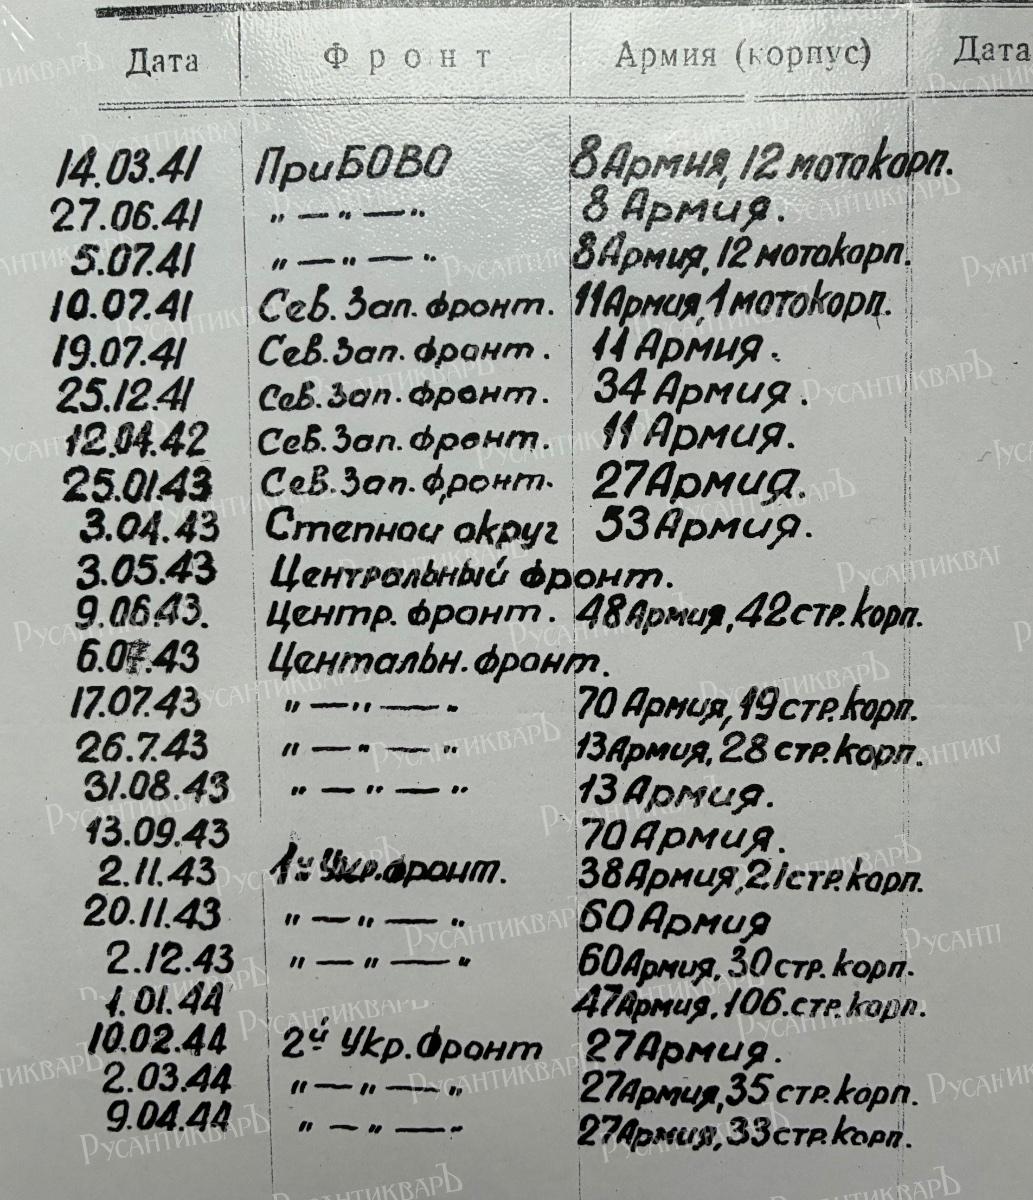 Дата Фронт Армия (корпус) Дата
14.03.41 ПриБОВО 8 Армия, 12 мотокорп.
27.06.41 " — " — " 8 Армия.
5.07.41 " — " — " 8 Армия, 12 мотокорп.
10.07.41 Сев. Зап. фронт. 11 Армия, 1 мотокорп.
19.07.41 Сев. Зап. фронт. 11 Армия.
25.12.41 Сев. Зап. фронт. 34 Армия.
12.04.42 Сев. Зап. фронт. 11 Армия.
25.01.43 Сев. Зап. фронт. 27 Армия.
3.04.43 Степной округ 53 Армия.
3.05.43 Центральный фронт.
9.06.43. Центр. фронт. 48 Армия, 42 стр. корп.
6.07.43 Центальн. фронт.
17.07.43 " — " — " 70 Армия, 19 стр. корп.
26.7.43 " — " — " 13 Армия, 28 стр. корп.
31.08.43 " — " — " 13 Армия.
13.09.43 70 Армия.
2.11.43 1й Укр. фронт. 38 Армия, 21 стр. корп.
20.11.43 " — " — " 60 Армия
2.12.43 " — " — " 60 Армия, 30 стр. корп.
1.01.44 47 Армия, 106. стр. корп.
10.02.44 2й Укр. Фронт 27 Армия.
2.03.44 " — " — " 27 Армия, 35 стр. корп.
9.04.44 " — " — " 27 Армия, 33 стр. корп.
РусАнтикварЪ